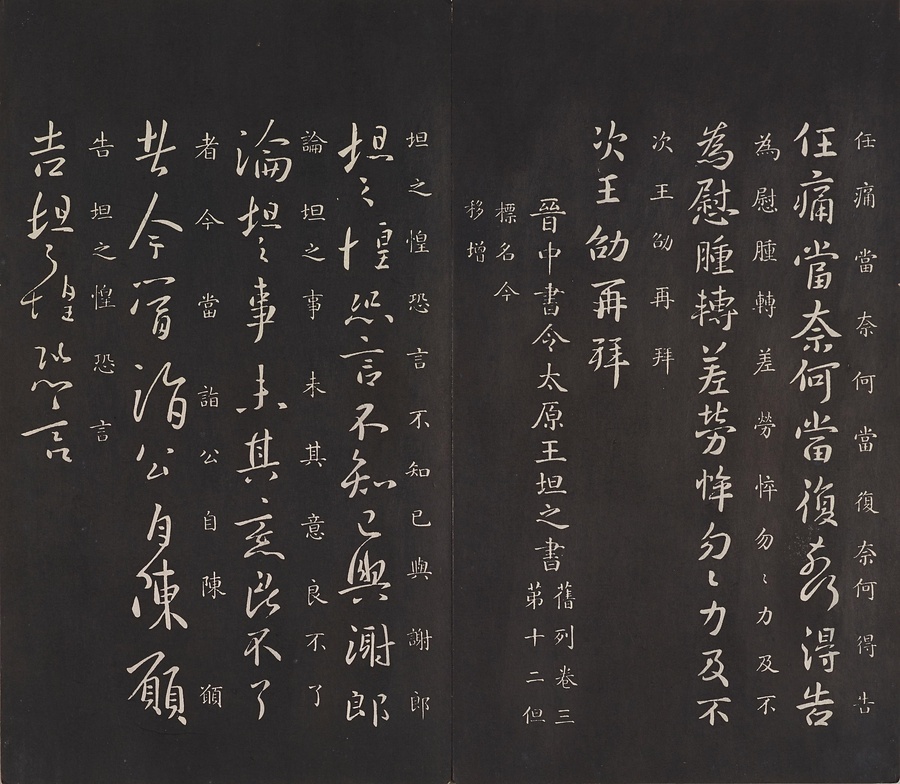 任痛當奈何當復奈何得告
任痛當奈何當復奈何得告
為慰腫轉差勞悴勿〻力及不
為慰腫轉差勞悴勿〻力及不
次王劭再拜
次王劭再拜
晉中書令太原王坦之書
舊列卷三
第十二但
標名今
移增
坦之惶恐言不知已與謝郎
坦之惶恐言不知已與謝郎
論坦之事未其意良不了
論坦之事未其意良不了
者今當詣公自陳願
者今當詣公自陳願
告坦之惶恐言
告坦之惶恐言